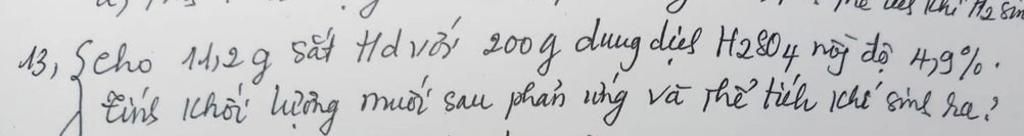 13, Cho 11,2 g sắt td với 200g dung dịch H2SO4 nồng độ 4,9%.
tính khối lượng muối sau phản ứng và thể tích khí sinh ra?